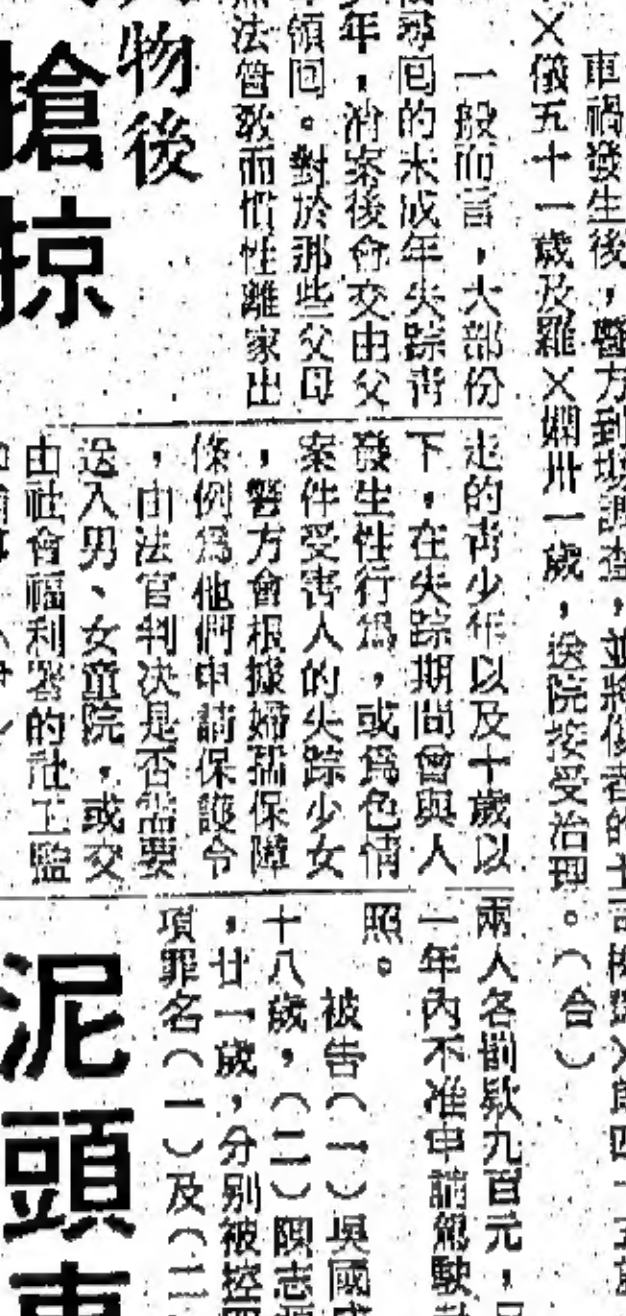 車禍發生後，警方到場調查，並將傷者的士司機
儀五十一歲及羅X嫻卅一歲，送院接受治理。（合）
一般而言，大部份
尋回的未成年失踪青
年，消案後會交由父
領回。對於那些父母
法管教而慣性離家出
走的青少年以及十歲以
下，在失踪期間曾與人
發生性行爲，或爲色情
案件受害人的失踪少女
，警方會根據婦孺保障
條例爲他們申請保護令
，由法官判決是否需要
送入男、女童院，或交
由社會福利署的社工監
物後
搶掠
兩人各罰欵九百元，
一年內不准申請駕駛
照。
被告（一）吳國
十八歲，（二）陳志
，廿一歲，分別被控
項罪名（一）及（二
泥頭車